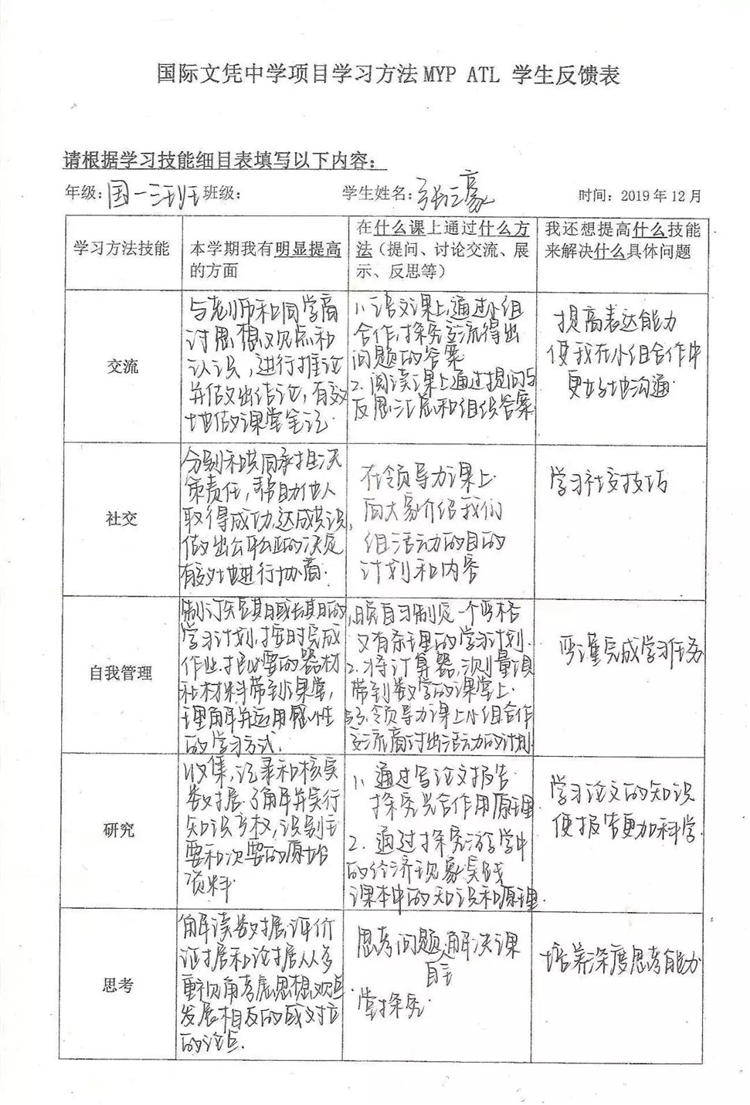 国际文凭中学项目学习方法 MYP ATL 学生反馈表
请根据学习技能细目表填写以下内容：
年级：国一三班 班级： 学生姓名：张三豪 时间：2019年12月
学习方法技能
本学期我有明显提高
的方面
在什么课上通过什么方
法（提问、讨论交流、展
示、反思等）
我还想提高什么技能
来解决什么具体问题
交流
与老师和同学商
讨思想观点和
认识，进行推论
并做出结论，有效
地做课堂笔记
1、语文课上，通过小组
合作，探究交流得出
问题的答案
2. 阅读课上通过提问与
反思汇总和组织答案
提高表达能力
使我在小组合作中
更好地沟通
社交
分别和共同承担决
策责任，帮助他人
取得成功，达成共识，
做出公平公正的决定
有效地进行协商.
在领导力课上
向大家介绍我们
组活动的目的
计划和内容
学习社交技巧
自我管理
制订短期或长期的
学习计划，按时完成
作业，把必要的器材
和材料带到课堂，
理解并运用感性
的学习方式.
1.晚自习制定一个严格
又有条理的学习计划.
2. 将计算器，测量
带到数学的课堂上.
3、领导力课上小组合作
交流商讨出活动的计划
严谨完成学习任务
研究
收集，记录和核实
数据.了解并实行
知识产权，识别主
要和次要的原始
资料
1、通过写论文报告
探究光合作用原理
2. 通过探究
的经济现象实践
课本中的知识和原理
学习论文的知识
使报告更加科学.
思考
解读数据，评价
证据和论据从多
重视角考虑思想，观点
发展相反的或对立
的论点.
思考问题，解决课
自主
堂探究
培养深度思考能力